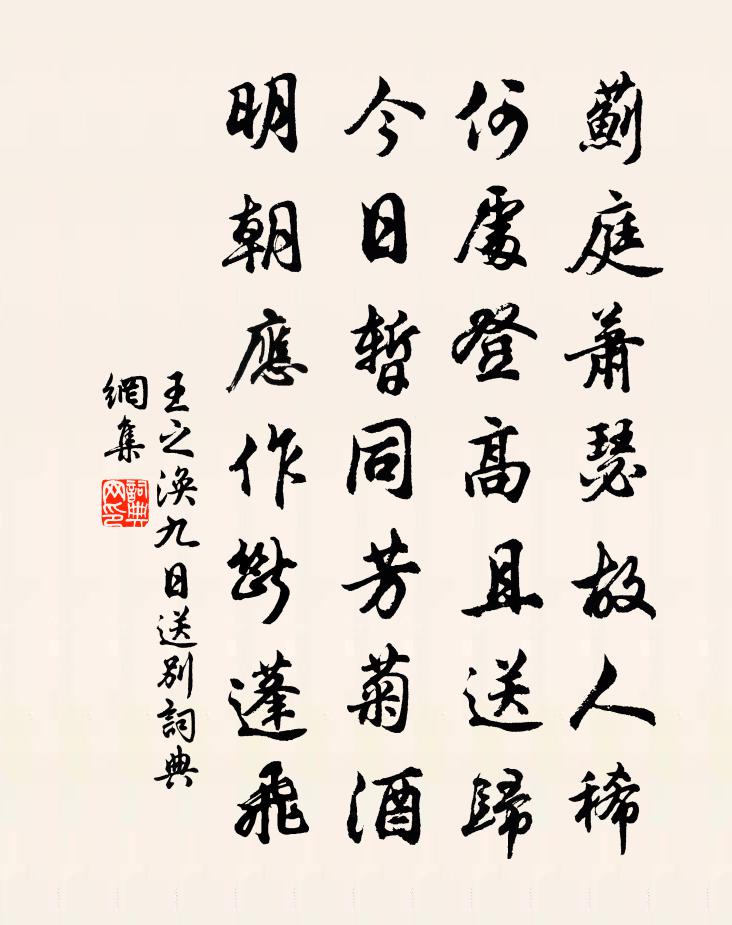 薊庭蕭瑟故人稀
何處登高且送歸
今日暫同芳菊酒
明朝應作斷蓬飛
王之渙九日送別詞典
網集
詞典網印